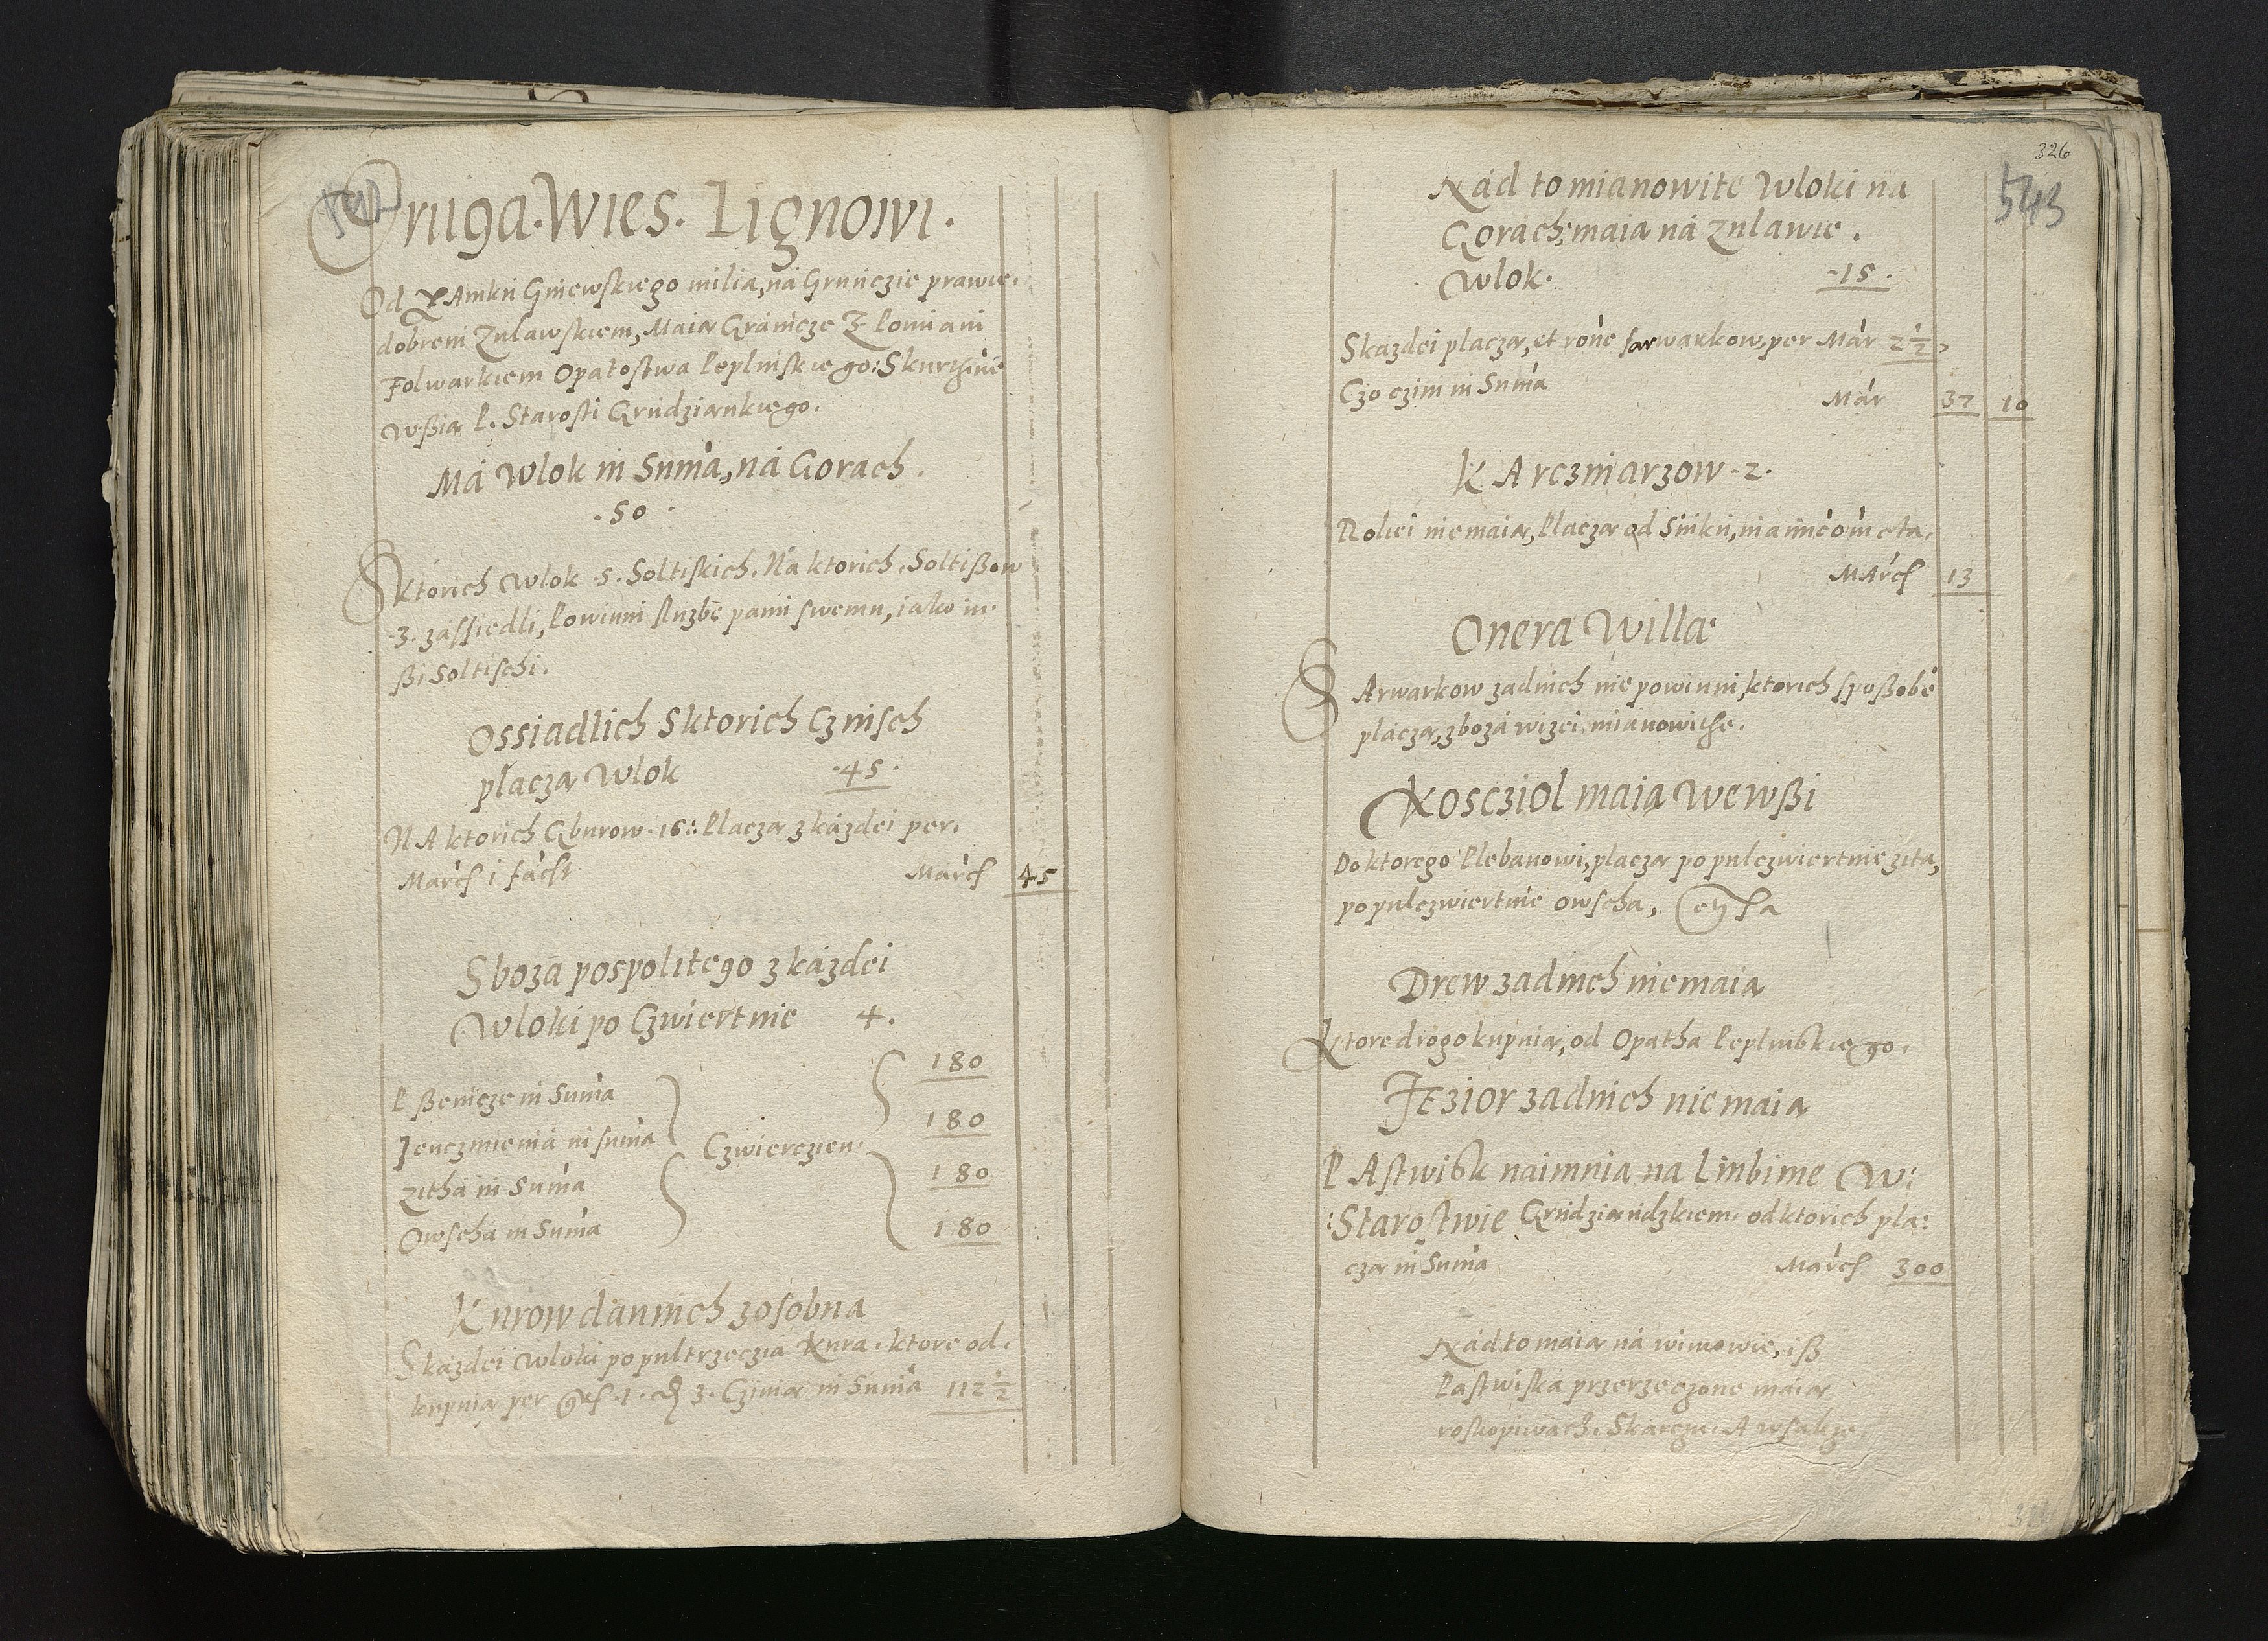 Druga. Wies. Lignowi.
Od ZAmku Gniewskiego milia, ná Grunczie prawie.
dobrem Zulawskiem, Maia Gránicze Z Lomiani
Folwarkiem Opatostwa Peplinskiego: Skurzi
Wßia P. Starosti Grudziankiego.
Má Wlok in Suma, ná Gorach.
.50.
Sktorich Wlok .5. Soltiskich. Na ktorich. Soltißow
.3. zassiedli, Powinni sluzbe panu swemu, iako in.
ßi Soltischi.
Ossiadlich Sktorich Czinsch
płacza Wlok .45.
NA ktorich Gburow .16: Placza z kázdei per.
March i facst March 45
Sboza pospolitego z kázdei
Wloki po Czwiertnie 4.
Pßenicze in Suma 180
Jenczmienia in suma 180
Czwierczien
zitha in Suma 180
Owscha in Suma 180
Kurow dannich zosobna
Skázdei Wloki po pultrzeczia Kura. ktore od.
kupuia per gros .1. 3. Cziniia in Suma 112 1/2
326
543
Nád to mianowite Wloki na
Gorách, maia ná Zulawie.
Wlok. -15.
Skázdei placza, et rone sarwarkow, per Már 2 1/2
Czo czini in Suma Már 37 10
KArczmarzow .2.
Roliei niemaia, Placza od Sinku,
MArch 13
Onera Willæ
SArwarkow zadnich nie powinni, ktorich spoßobe
płácza, zbozá wizei miánowithe.
Koscziol maia wewßi
Do ktorego Plebanowi, placza po pulczwiertnie zita,
po pulczwiertnie owscha,
Drew zadnich niemaia
Ktore drogo kupuia, od Opatha Peplinskiego.
Jezior zadnich niemaia
PAstwisk naimuia na Linbime W:
:Starostwie Grudziandzkiem. od ktorich pla:
cza in Suma March 300
Nád to maia ná wimowie, iß
Pastwiská przerzeczone maia
roskopiwach. A wsakze